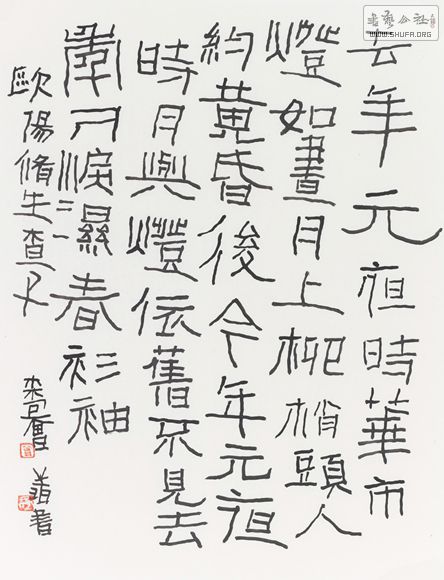 書藝公社
WWW.SHUFA.ORG
去年元亱時華市
燈如晝月上柳梢頭人
約黃昏後今年元亱
時月與燈依舊不見去
年人淚濕春衫袖
歐陽脩生查子